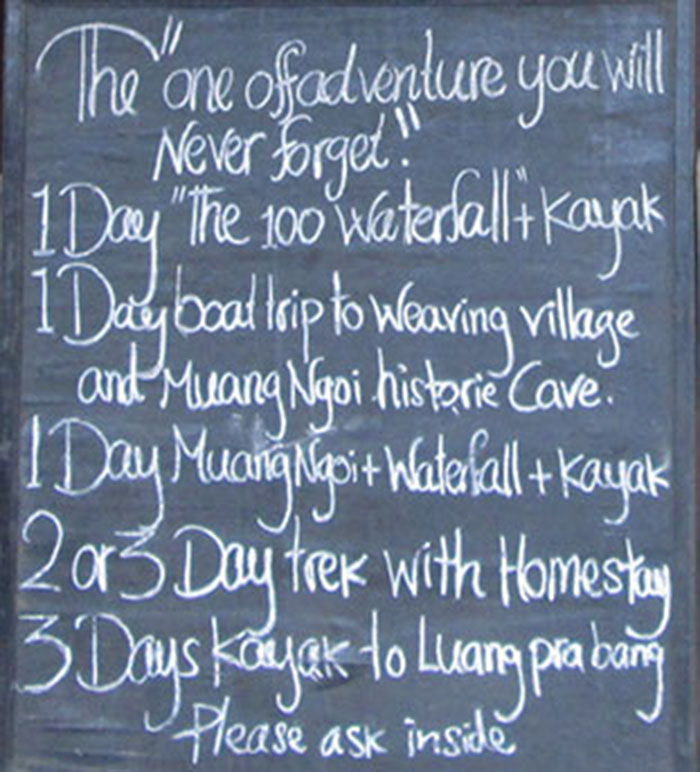 The "one off adventure you will
Never forget."
1 Day "The 100 Waterfall" + Kayak
1 Day boat trip to Weaving village
and Muang Ngoi historic Cave.
1 Day Muang Ngoi + Waterfall + Kayak
2 or 3 Day trek with Homestay
3 Days kayak to Luang prabang
Please ask inside